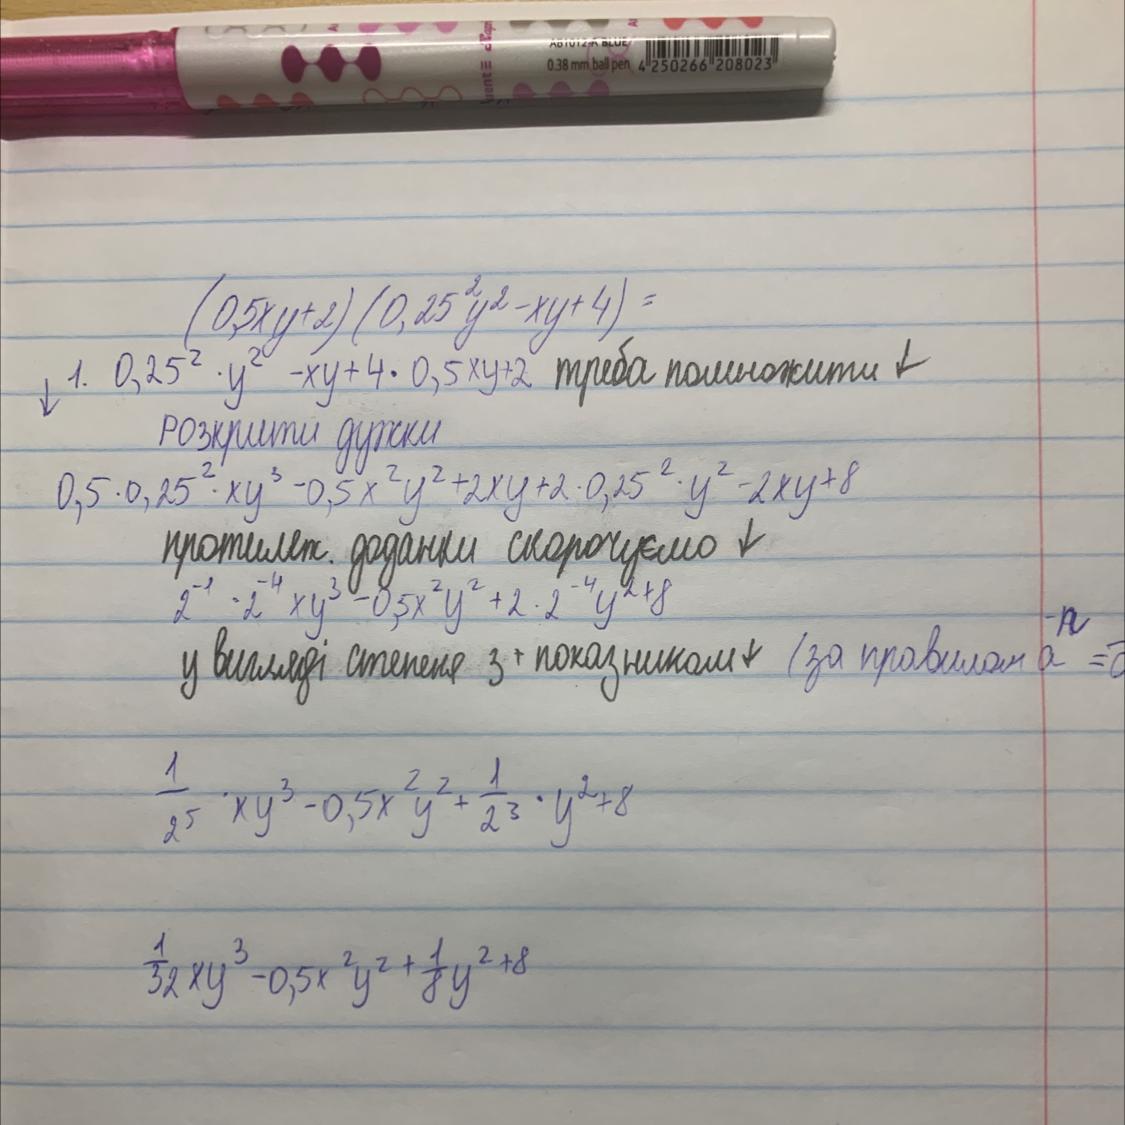 AB1012-A BLUE
0.38 mm ball pen 4 250266 208023
(0,5xy+2)(0,25²y²-xy+4)=
↓ 1. 0,25²·y² -xy+4·0,5xy+2 треба помножити ↓
розкрити дужки
0,5·0,25²·xy³-0,5x²y²+2xy+2·0,25²·y²-2xy+8
протилеж. доданки скорочуємо ↓
2⁻¹·2⁻⁴xy³-0,5x²y²+2·2⁻⁴y²+8
у вигляді степеня з + показником ↓ (за правилом a⁻ⁿ=
1/2⁵·xy³-0,5x²y²+1/2³·y²+8
1/32xy³-0,5x²y²+1/8y²+8